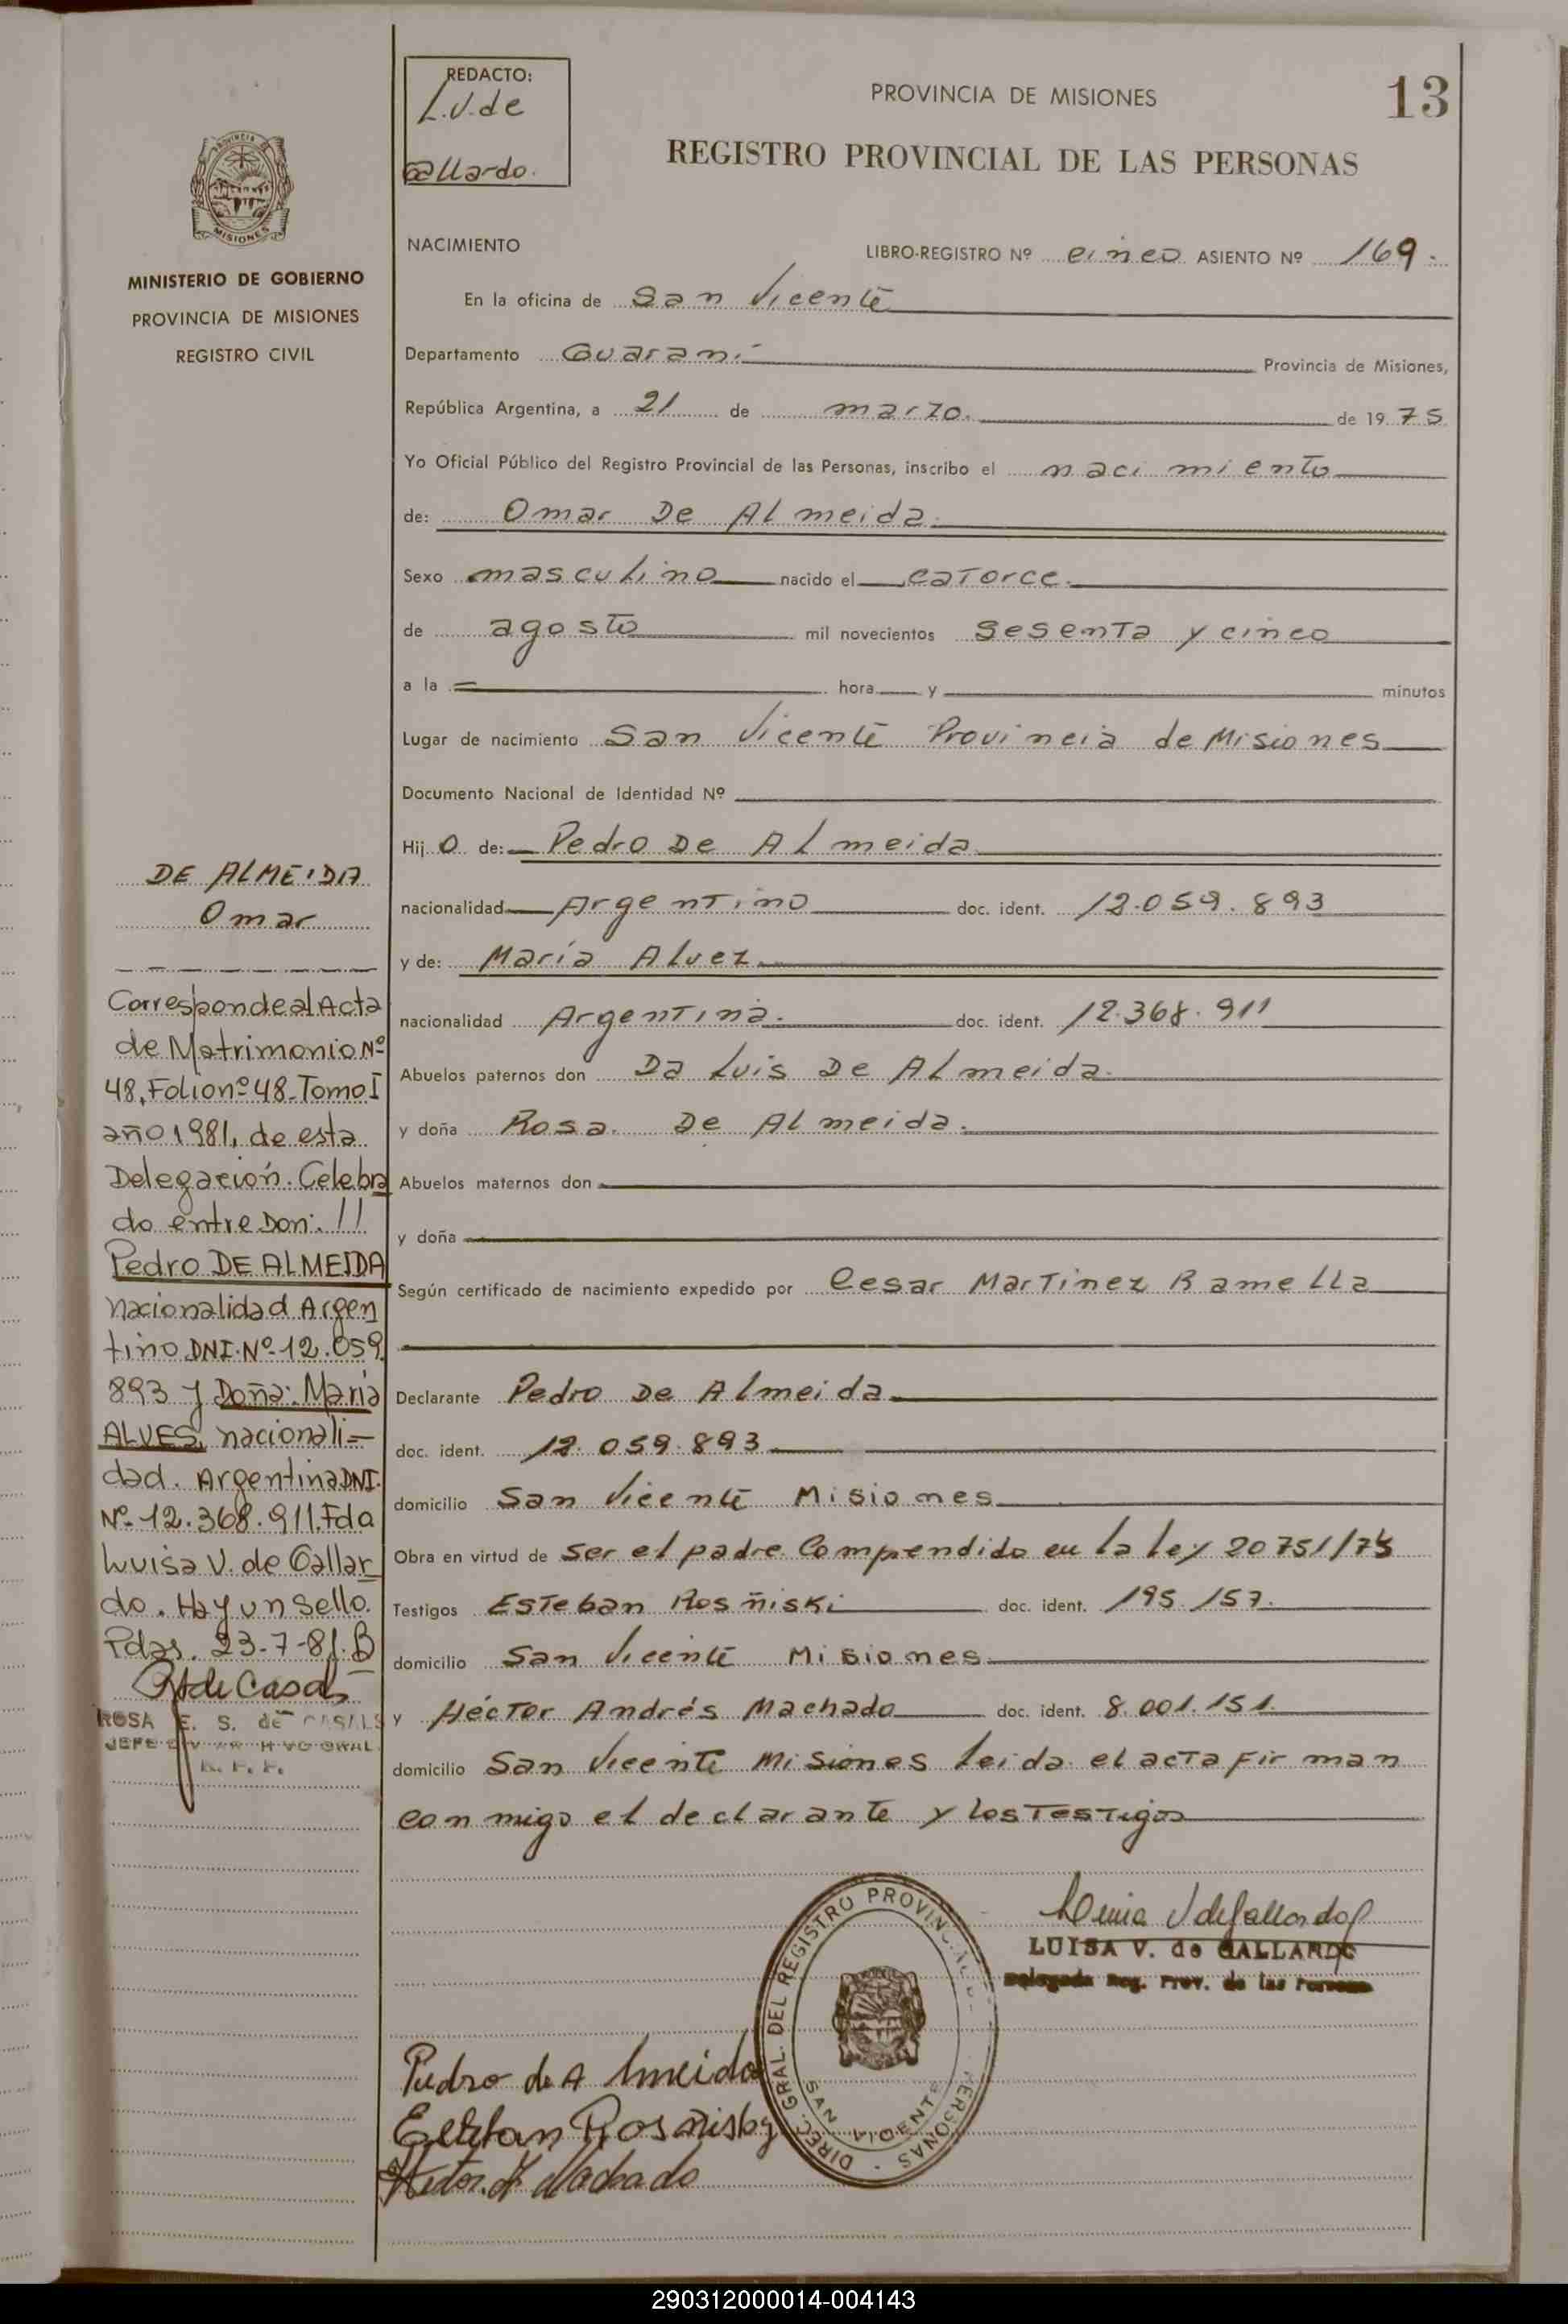 REDACTO:
L.V. de
Gallardo.
PROVINCIA DE MISIONES
13
REGISTRO PROVINCIAL DE LAS PERSONAS
PROVINCIA DE
MISIONES
MINISTERIO DE GOBIERNO
PROVINCIA DE MISIONES
REGISTRO CIVIL
NACIMIENTO LIBRO-REGISTRO Nº cinco ASIENTO Nº 169.
En la oficina de San Vicente
Departamento Guaraní Provincia de Misiones,
República Argentina, a 21 de marzo. de 1975
Yo Oficial Público del Registro Provincial de las Personas, inscribo el nacimiento
de: Omar De Almeida.
Sexo masculino nacido el catorce.
de agosto mil novecientos sesenta y cinco
a la = hora y minutos
Lugar de nacimiento San Vicente Provincia de Misiones
Documento Nacional de Identidad Nº
Hijo de: Pedro De Almeida
nacionalidad Argentino doc. ident. 12.059.893
y de: María Alvez
nacionalidad Argentina. doc. ident. 12.368.911
Abuelos paternos don Da Luis De Almeida.
y doña Rosa De Almeida.
Abuelos maternos don
y doña
Según certificado de nacimiento expedido por Cesar Martinez Ramella
Declarante Pedro De Almeida
doc. ident. 12.059.893
domicilio San Vicente Misiones
Obra en virtud de ser el padre Comprendido en la ley 20751/74
Testigos Esteban Rosñiski doc. ident. 195.157.
domicilio San Vicente Misiones
y Héctor Andrés Machado doc. ident. 8.001.151.
domicilio San Vicente Misiones leida el acta firman
conmigo el declarante y los Testigos
DE ALMEIDA
Omar
Corresponde al Acta
de Matrimonio Nº
48, Folio nº 48 Tomo I
año 1981, de esta
Delegación. Celebra
do entre Don: //
Pedro DE ALMEIDA
nacionalidad Argen
tino DNI. Nº 12.059
893 y Doña: María
ALVES, nacionali=
dad. Argentina DNI.
Nº 12.368.911. Fda
Luisa V. de Gallar
do. Hay un sello.
Pdas. 23-7-81. B
R de Casals
ROSA E. S. de CASALS
R. P. P.
Luisa V de Gallardo
LUISA V. de GALLARDO
Delegada Reg. Prov. de las Personas
DIREC. GRAL. DEL REGISTRO PROVINCIAL DE LAS PERSONAS
SAN VICENTE
Pedro de Almeida
Esteban Rosñisky
Hector A Machado
290312000014-004143